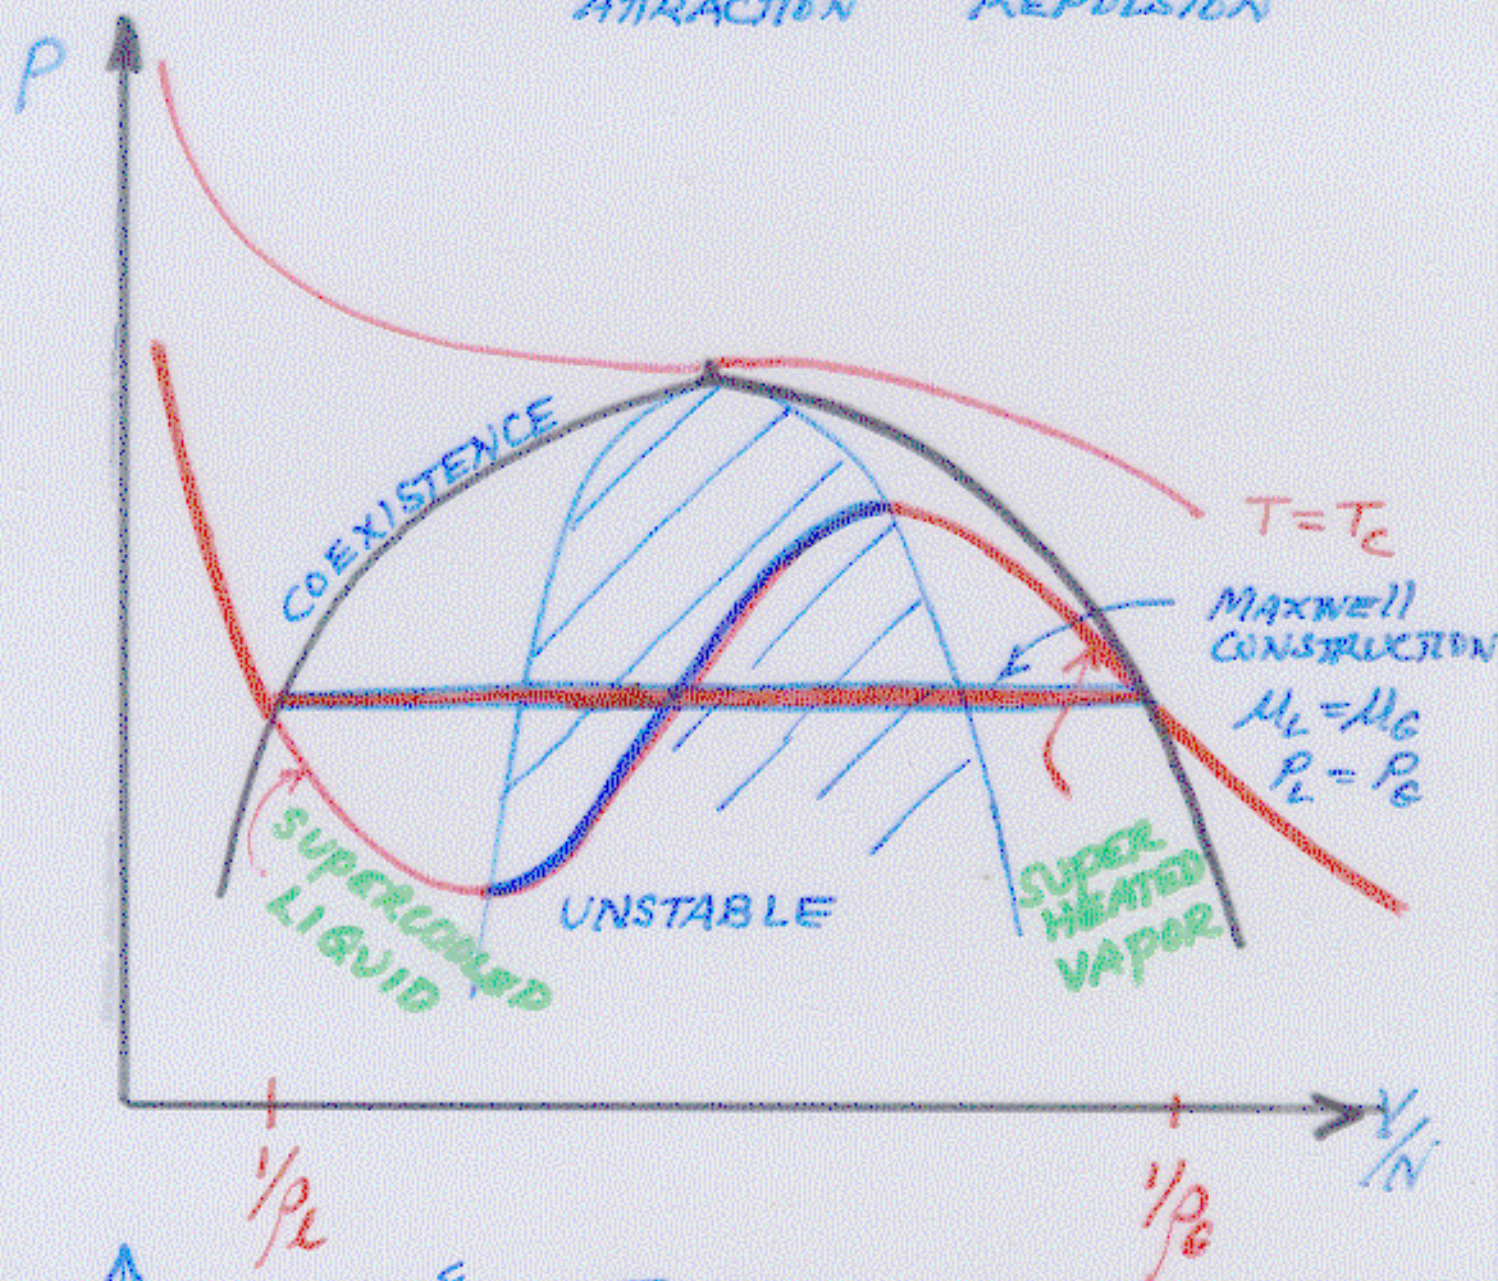 ATTRACTION REPULSION
P
COEXISTENCE
T = Tc
MAXWELL
CONSTRUCTION
μL = μG
PL = PG
SUPERCOOLED
LIQUID
UNSTABLE
SUPER
HEATED
VAPOR
V/N
1/ρL
1/ρG